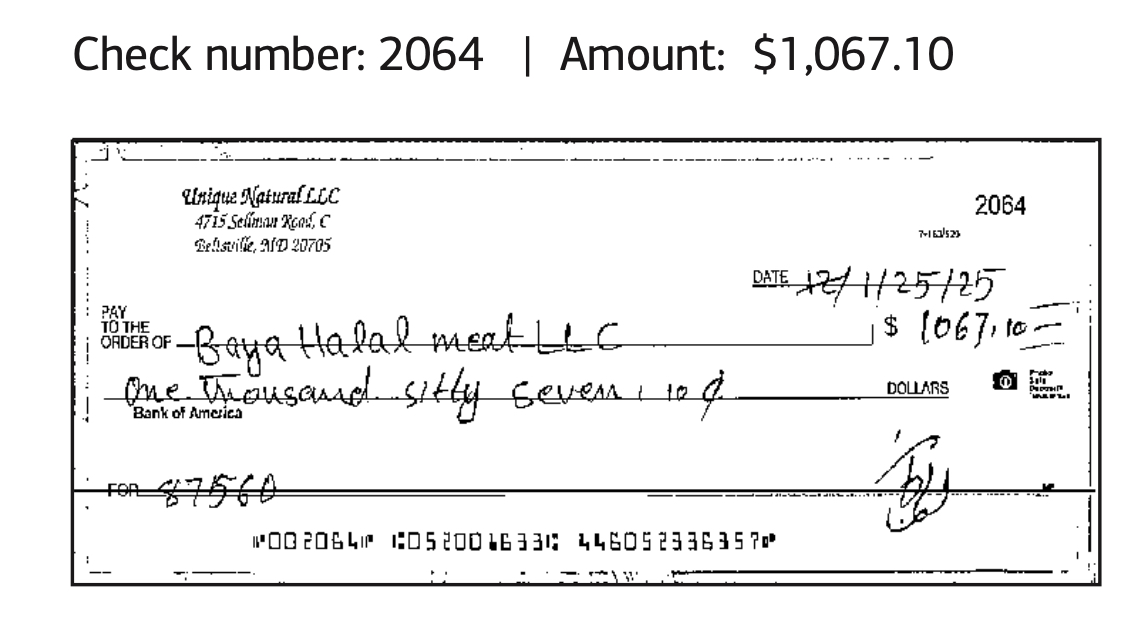 Check number: 2064 | Amount: $1,067.10
Unique Natural LLC
4715 Sellman Road, C
Beltsville, MD 20705
2064
7-163/520
DATE 12/ 1/25/25
PAY TO THE ORDER OF Baya Halal meat LLC $ 1067,10
One Thousand sitty seven, 10 ¢ DOLLARS
Bank of America
FOR 87560
⑈002064⑈ ⑆052001633⑆ 446052336357⑈